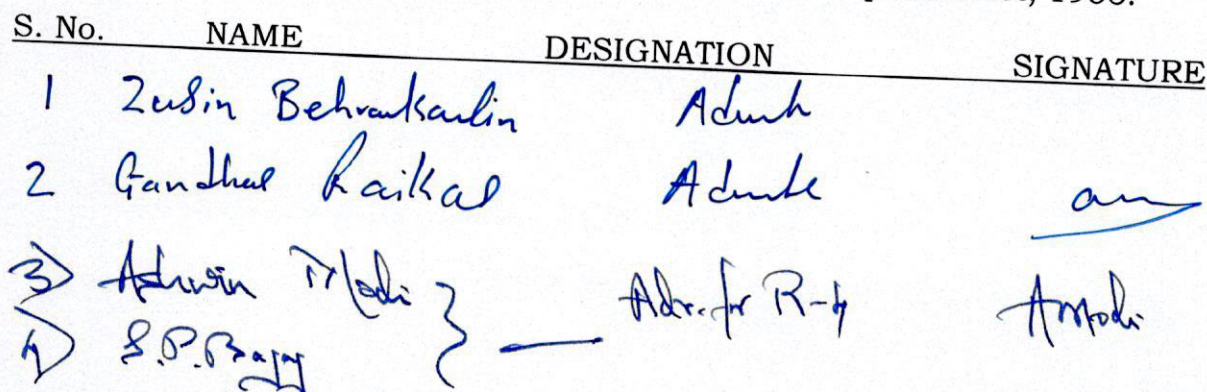 1986.
S. No. NAME DESIGNATION SIGNATURE
1 Zubin Behramkamdin
2 Gandhar Raikar
3) Ashwin Modi } — Adv. for R-4 AModi
4) S.P. Bajaj